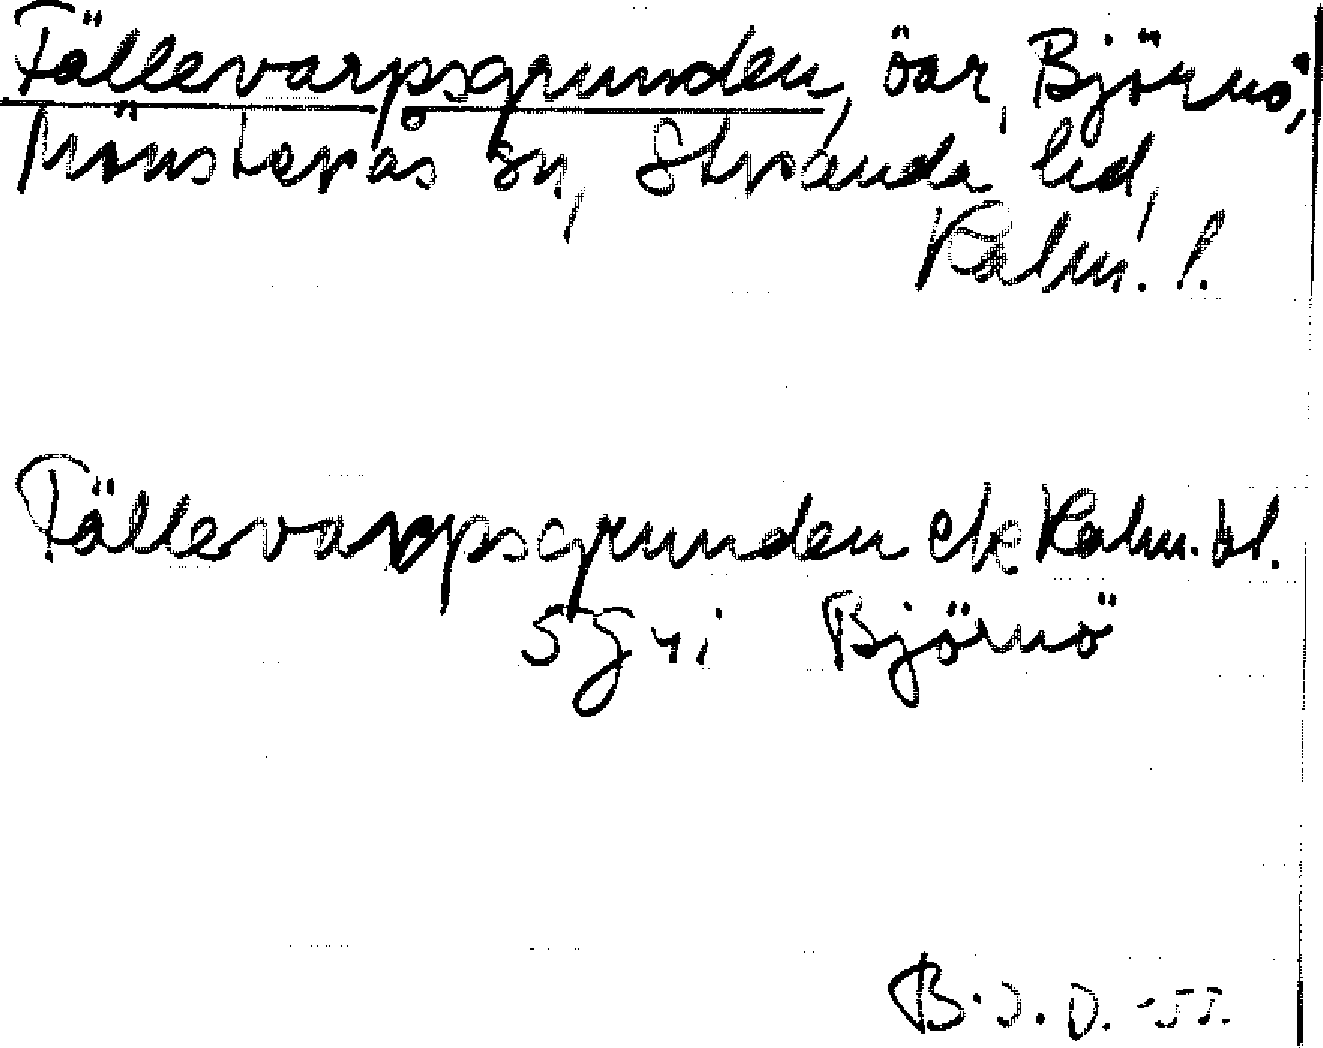 Fällevarpsgrunden, öar, Björnö,
Mönsterås sn, Stranda hd,
Kalm. l.
Fällevarpsgrunden ek Kalm. bl.
5 Björnö
B.J.D. -55.